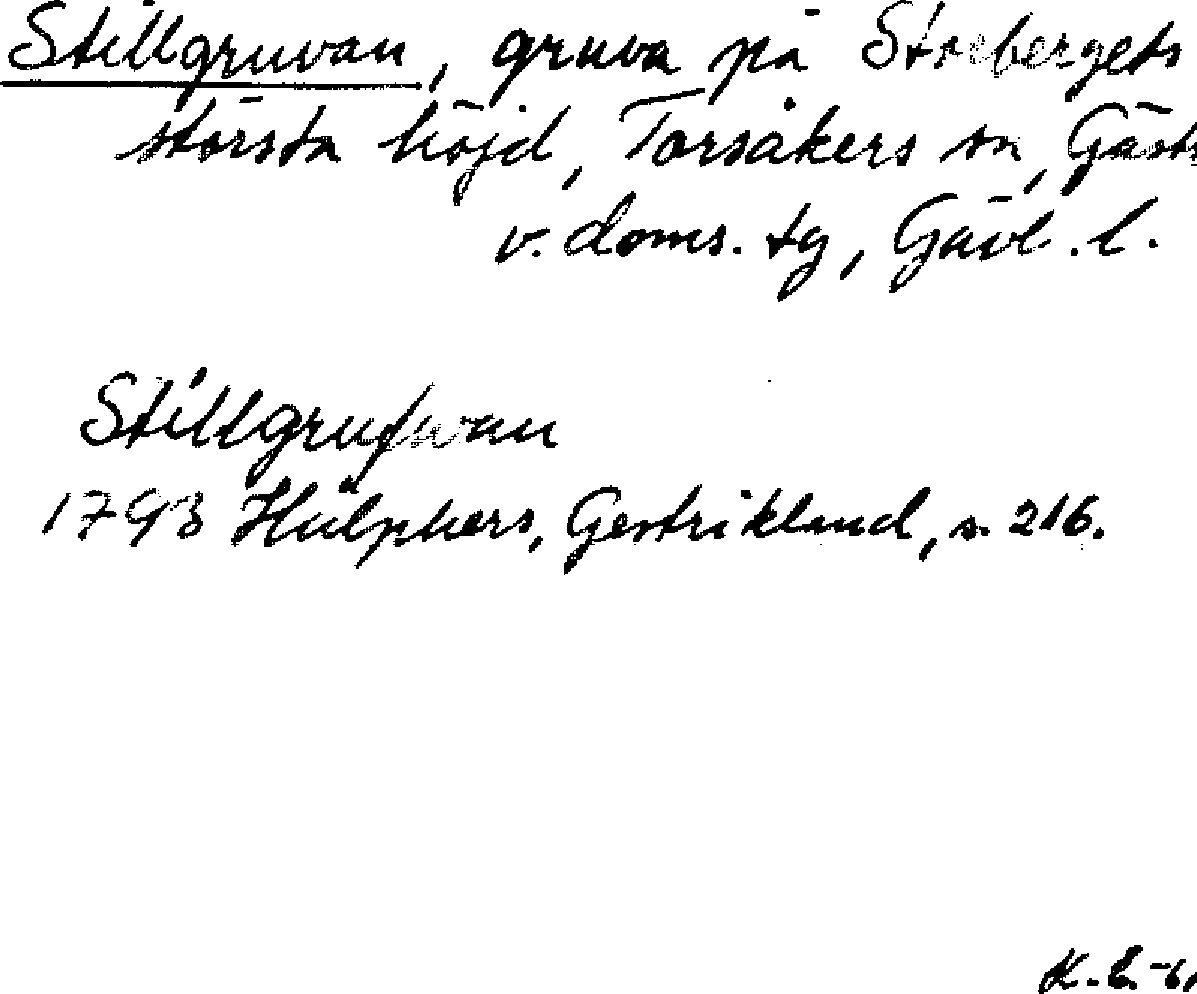 Stillgruvan, gruva på Storbergets
största höjd, Torsåkers sn, Gästr
v. doms. tg, Gävl. l.
Stillgrufwan
1793 Hülphers, Gestrikland, s. 216.